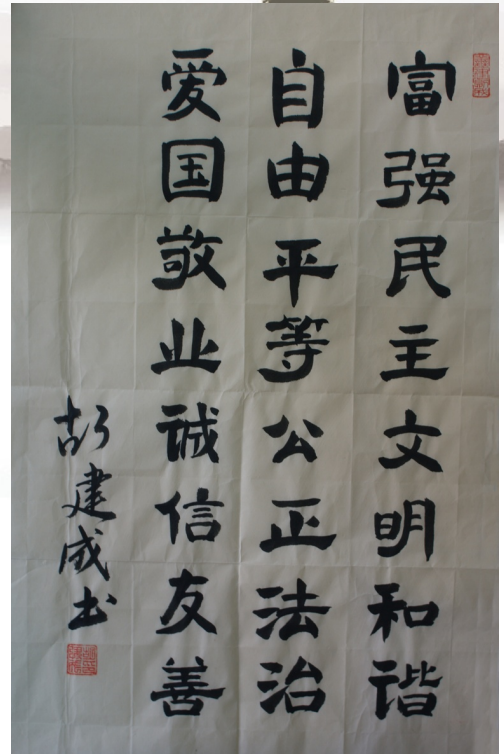 富强民主文明和谐
自由平等公正法治
爱国敬业诚信友善
胡建成书